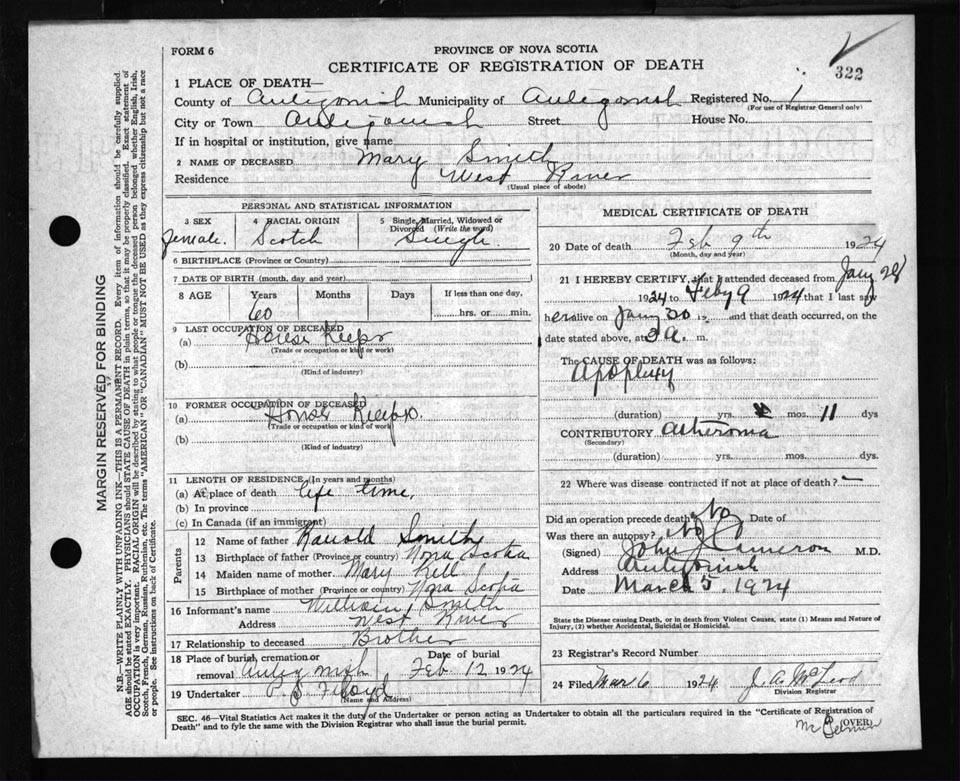 FORM 6
PROVINCE OF NOVA SCOTIA
CERTIFICATE OF REGISTRATION OF DEATH
322
1 PLACE OF DEATH—
County of Antigonish Municipality of Antigonish Registered No. 1
(For use of Registrar General only)
City or Town Antigonish Street House No.
If in hospital or institution, give name
2 NAME OF DECEASED Mary Smith
Residence West River
(Usual place of abode)
PERSONAL AND STATISTICAL INFORMATION
3 SEX 4 RACIAL ORIGIN 5 Single, Married, Widowed or Divorced (Write the word)
female. Scotch Single
6 BIRTHPLACE (Province or Country)
7 DATE OF BIRTH (month, day and year)
8 AGE Years Months Days If less than one day,
60 hrs. or min.
9 LAST OCCUPATION OF DECEASED
(a) House Keepr
(Trade or occupation or kind or work)
(b)
(Kind of industry)
10 FORMER OCCUPATION OF DECEASED
(a) House Keeper
(Trade or occupation or kind of work)
(b)
(Kind of industry)
11 LENGTH OF RESIDENCE (In years and months)
(a) At place of death life time.
(b) In province
(c) In Canada (if an immigrant)
Parents
12 Name of father Ranold Smith
13 Birthplace of father (Province or country) Nova Scotia
14 Maiden name of mother Mary
15 Birthplace of mother (Province or country) Nova Scotia
16 Informant's name William Smith
Address West River
17 Relationship to deceased Brother
18 Place of burial, cremation or removal Antigonish Date of burial Feb 12 1924
19 Undertaker P. S. Floyd
(Name and Address)
MEDICAL CERTIFICATE OF DEATH
20 Date of death Feb 9th 1924
(Month, day and year)
21 I HEREBY CERTIFY, that I attended deceased from Jany 28
1924 to Feby 9 1924 that I last saw
her alive on Jany 30 19 and that death occurred, on
date stated above, at 3 a. m.
The CAUSE OF DEATH was as follows:
Apoplexy
(duration) yrs. mos. 11 dys
CONTRIBUTORY Atheroma
(Secondary)
(duration) yrs. mos. dys.
22 Where was disease contracted if not at place of death? —
Did an operation precede death? No Date of
Was there an autopsy? No
(Signed) John J Cameron M.D.
Address Antigonish
Date March 5, 1924
State the Disease causing Death, or in death from Violent Causes, state (1) Means and Nature of Injury, (2) whether Accidental, Suicidal or Homicidal.
23 Registrar's Record Number
24 Filed Mar 6 1924 J. A. McLeod
Division Registrar
SEC. 46—Vital Statistics Act makes it the duty of the Undertaker or person acting as Undertaker to obtain all the particulars required in the "Certificate of Registration of
Death" and to fyle the same with the Division Registrar who shall issue the burial permit.
(OVER)
MARGIN RESERVED FOR BINDING
N.B.—WRITE PLAINLY WITH UNFADING INK—THIS IS A PERMANENT RECORD. Every item of information should be carefully supplied.
AGE should be stated EXACTLY. PHYSICIANS should STATE CAUSE OF DEATH in plain terms, so that it may be properly classified. Exact statement of
OCCUPATION is very important. RACIAL ORIGIN will be described by stating to what people or tongue the deceased person belonged whether English, Irish,
Scotch, French, German, Russian, Ruthenian, etc. The terms "AMERICAN" OR "CANADIAN" MUST NOT BE USED as they express citizenship but not a race
or people. See instructions on back of Certificate.